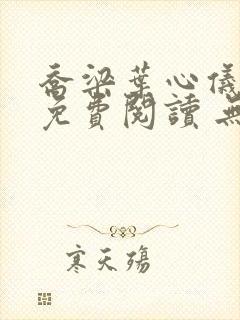 喬梁葉心儀
免費閱讀 無
寒天殤